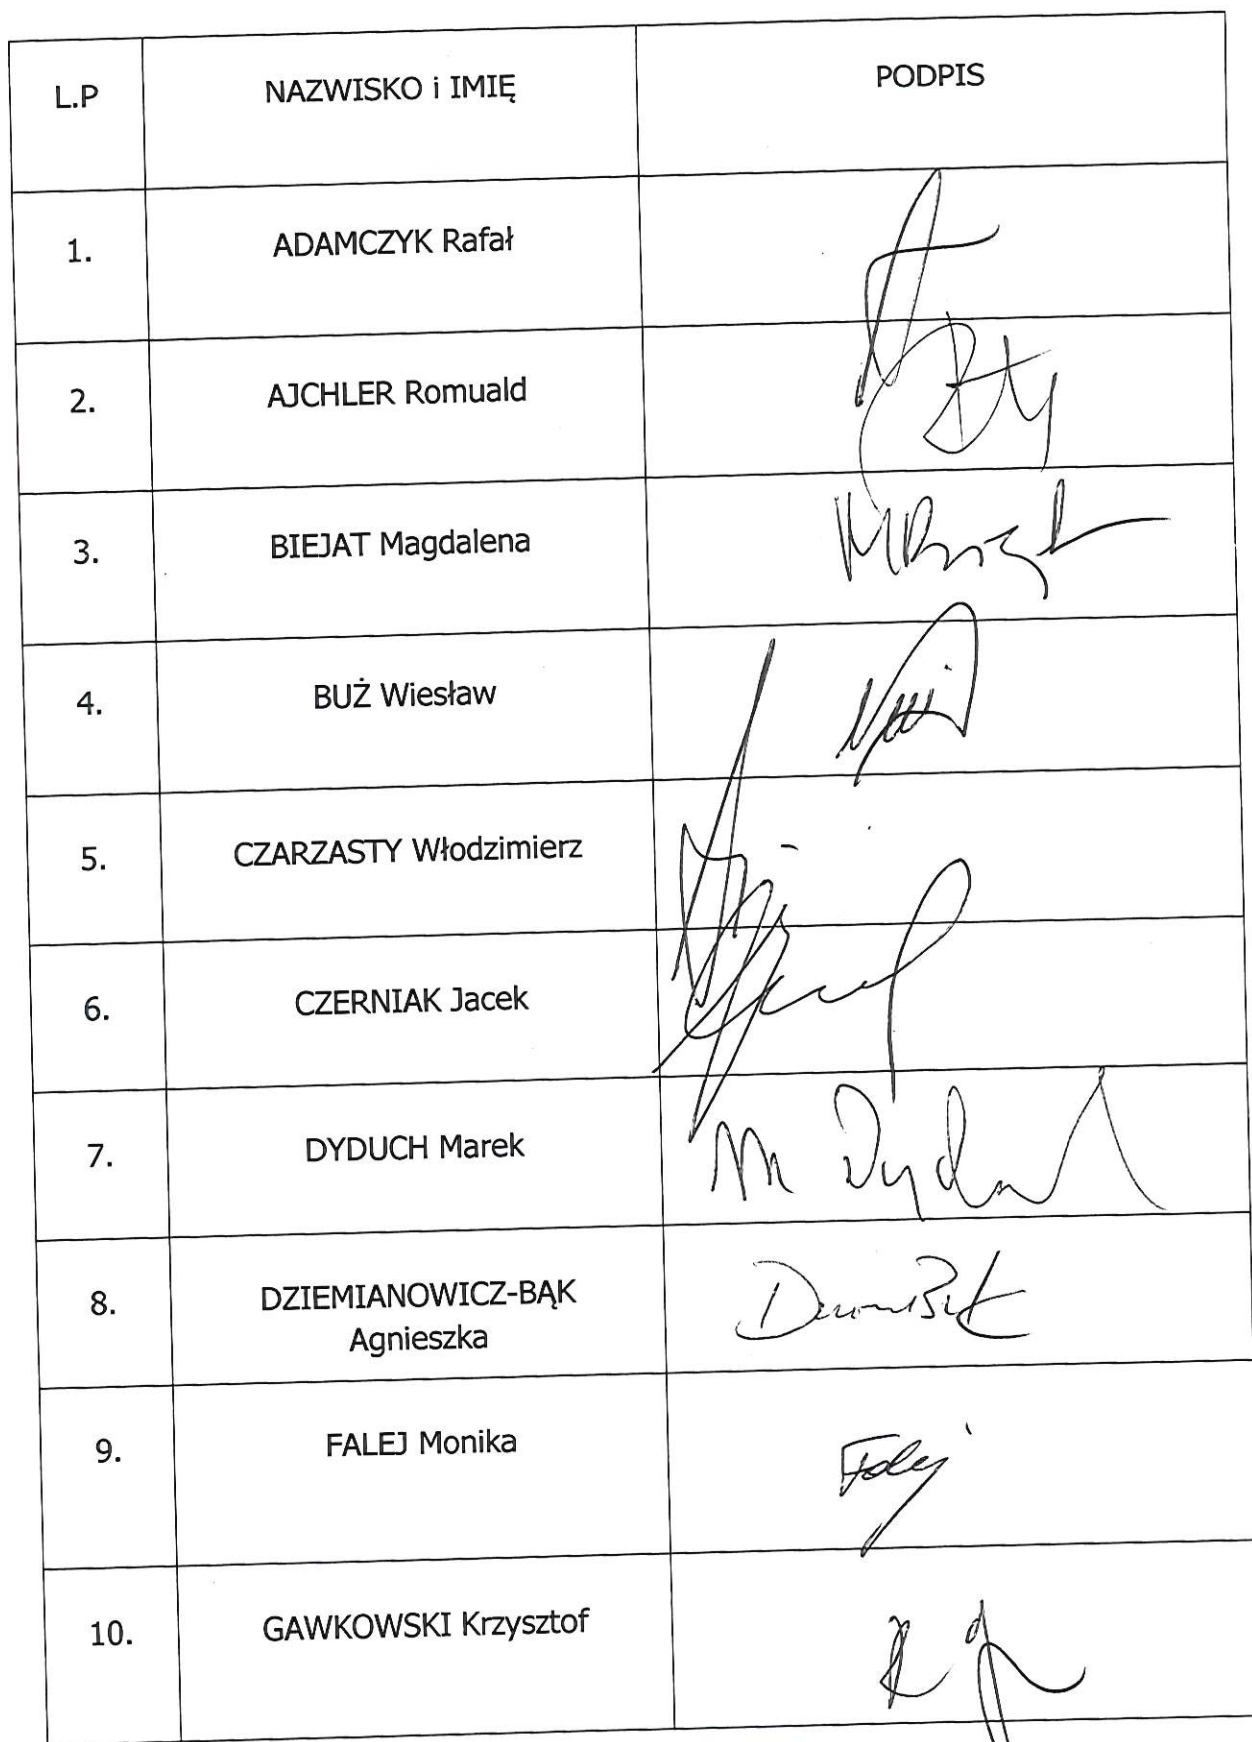 L.P NAZWISKO i IMIĘ PODPIS
1. ADAMCZYK Rafał
2. AJCHLER Romuald
3. BIEJAT Magdalena
4. BUŻ Wiesław
5. CZARZASTY Włodzimierz
6. CZERNIAK Jacek
7. DYDUCH Marek
8. DZIEMIANOWICZ-BĄK
Agnieszka
9. FALEJ Monika
10. GAWKOWSKI Krzysztof